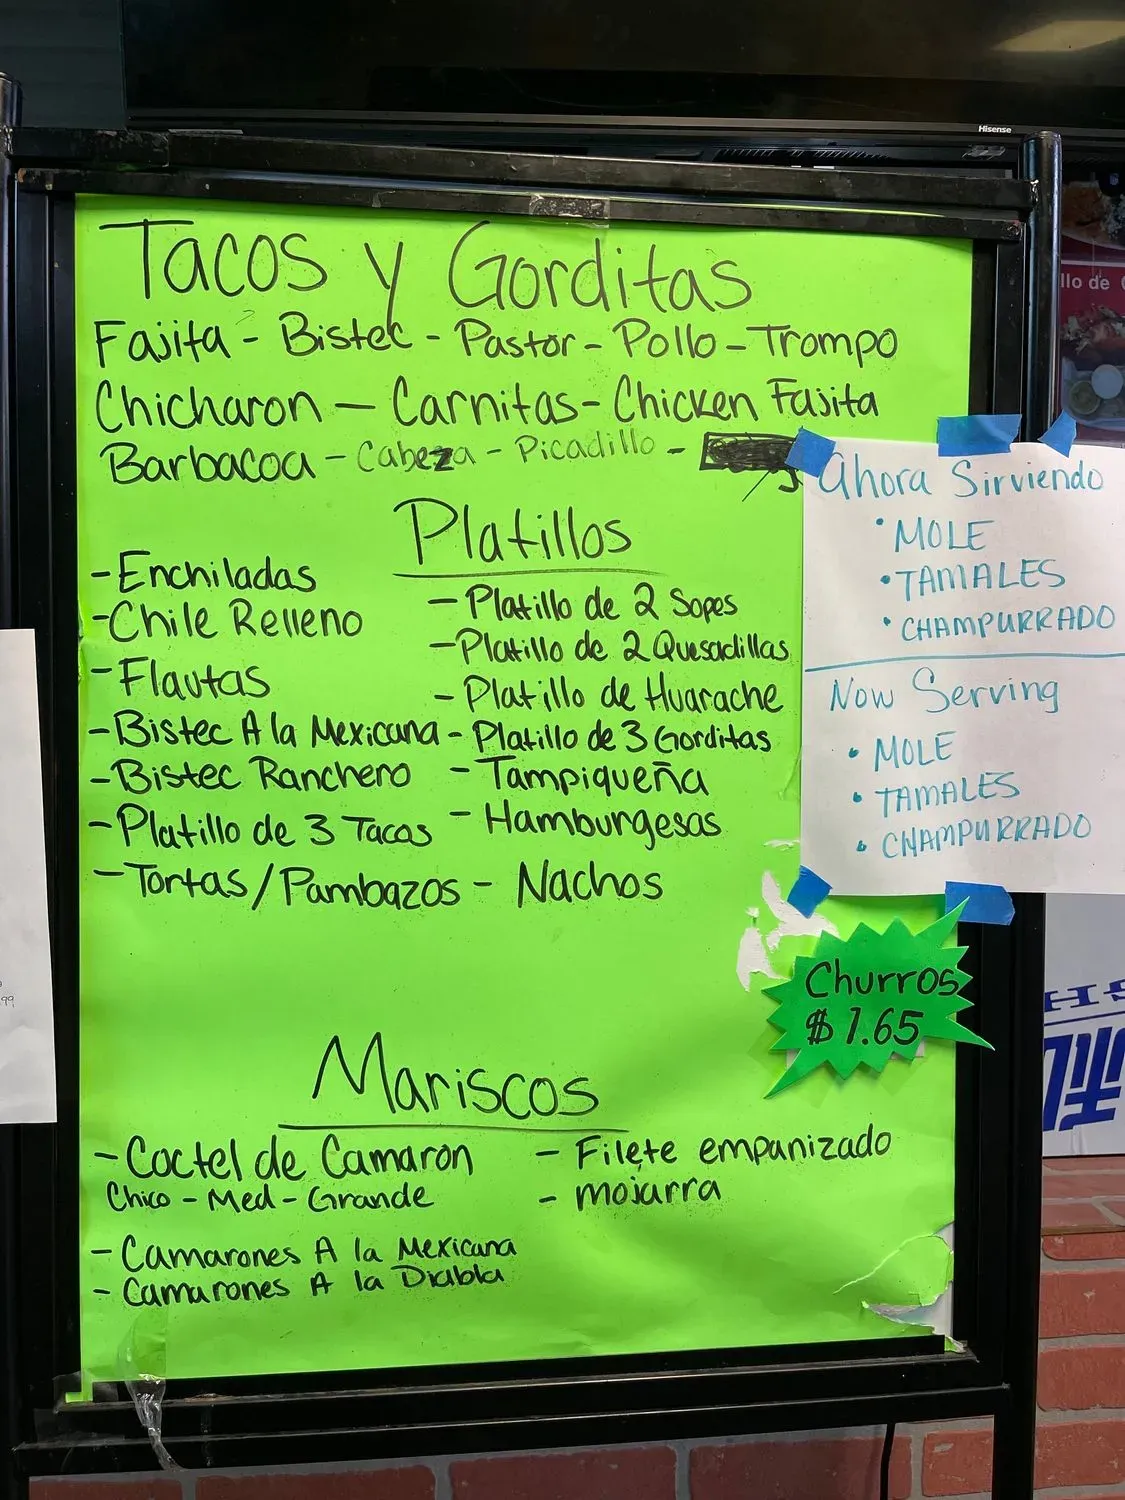 Hisense
Tacos y Gorditas
Fajita - Bistec - Pastor - Pollo - Trompo
Chicharon - Carnitas - Chicken Fajita
Barbacoa - Cabeza - Picadillo -
Platillos
- Enchiladas
- Chile Relleno
- Flautas
- Bistec A la Mexicana
- Bistec Ranchero
- Platillo de 3 Tacos
- Tortas/Pambazos
- Platillo de 2 Sopes
- Platillo de 2 Quesadillas
- Platillo de Huarache
- Platillo de 3 Gorditas
- Tampiqueña
- Hamburgesas
- Nachos
Mariscos
- Coctel de Camaron
Chico - Med - Grande
- Camarones A la Mexicana
- Camarones A la Diabla
- Filete empanizado
- mojarra
Ahora Sirviendo
• MOLE
• TAMALES
• CHAMPURRADO
Now Serving
• MOLE
• TAMALES
• CHAMPURRADO
Churros
$ 1.65
llo de
99